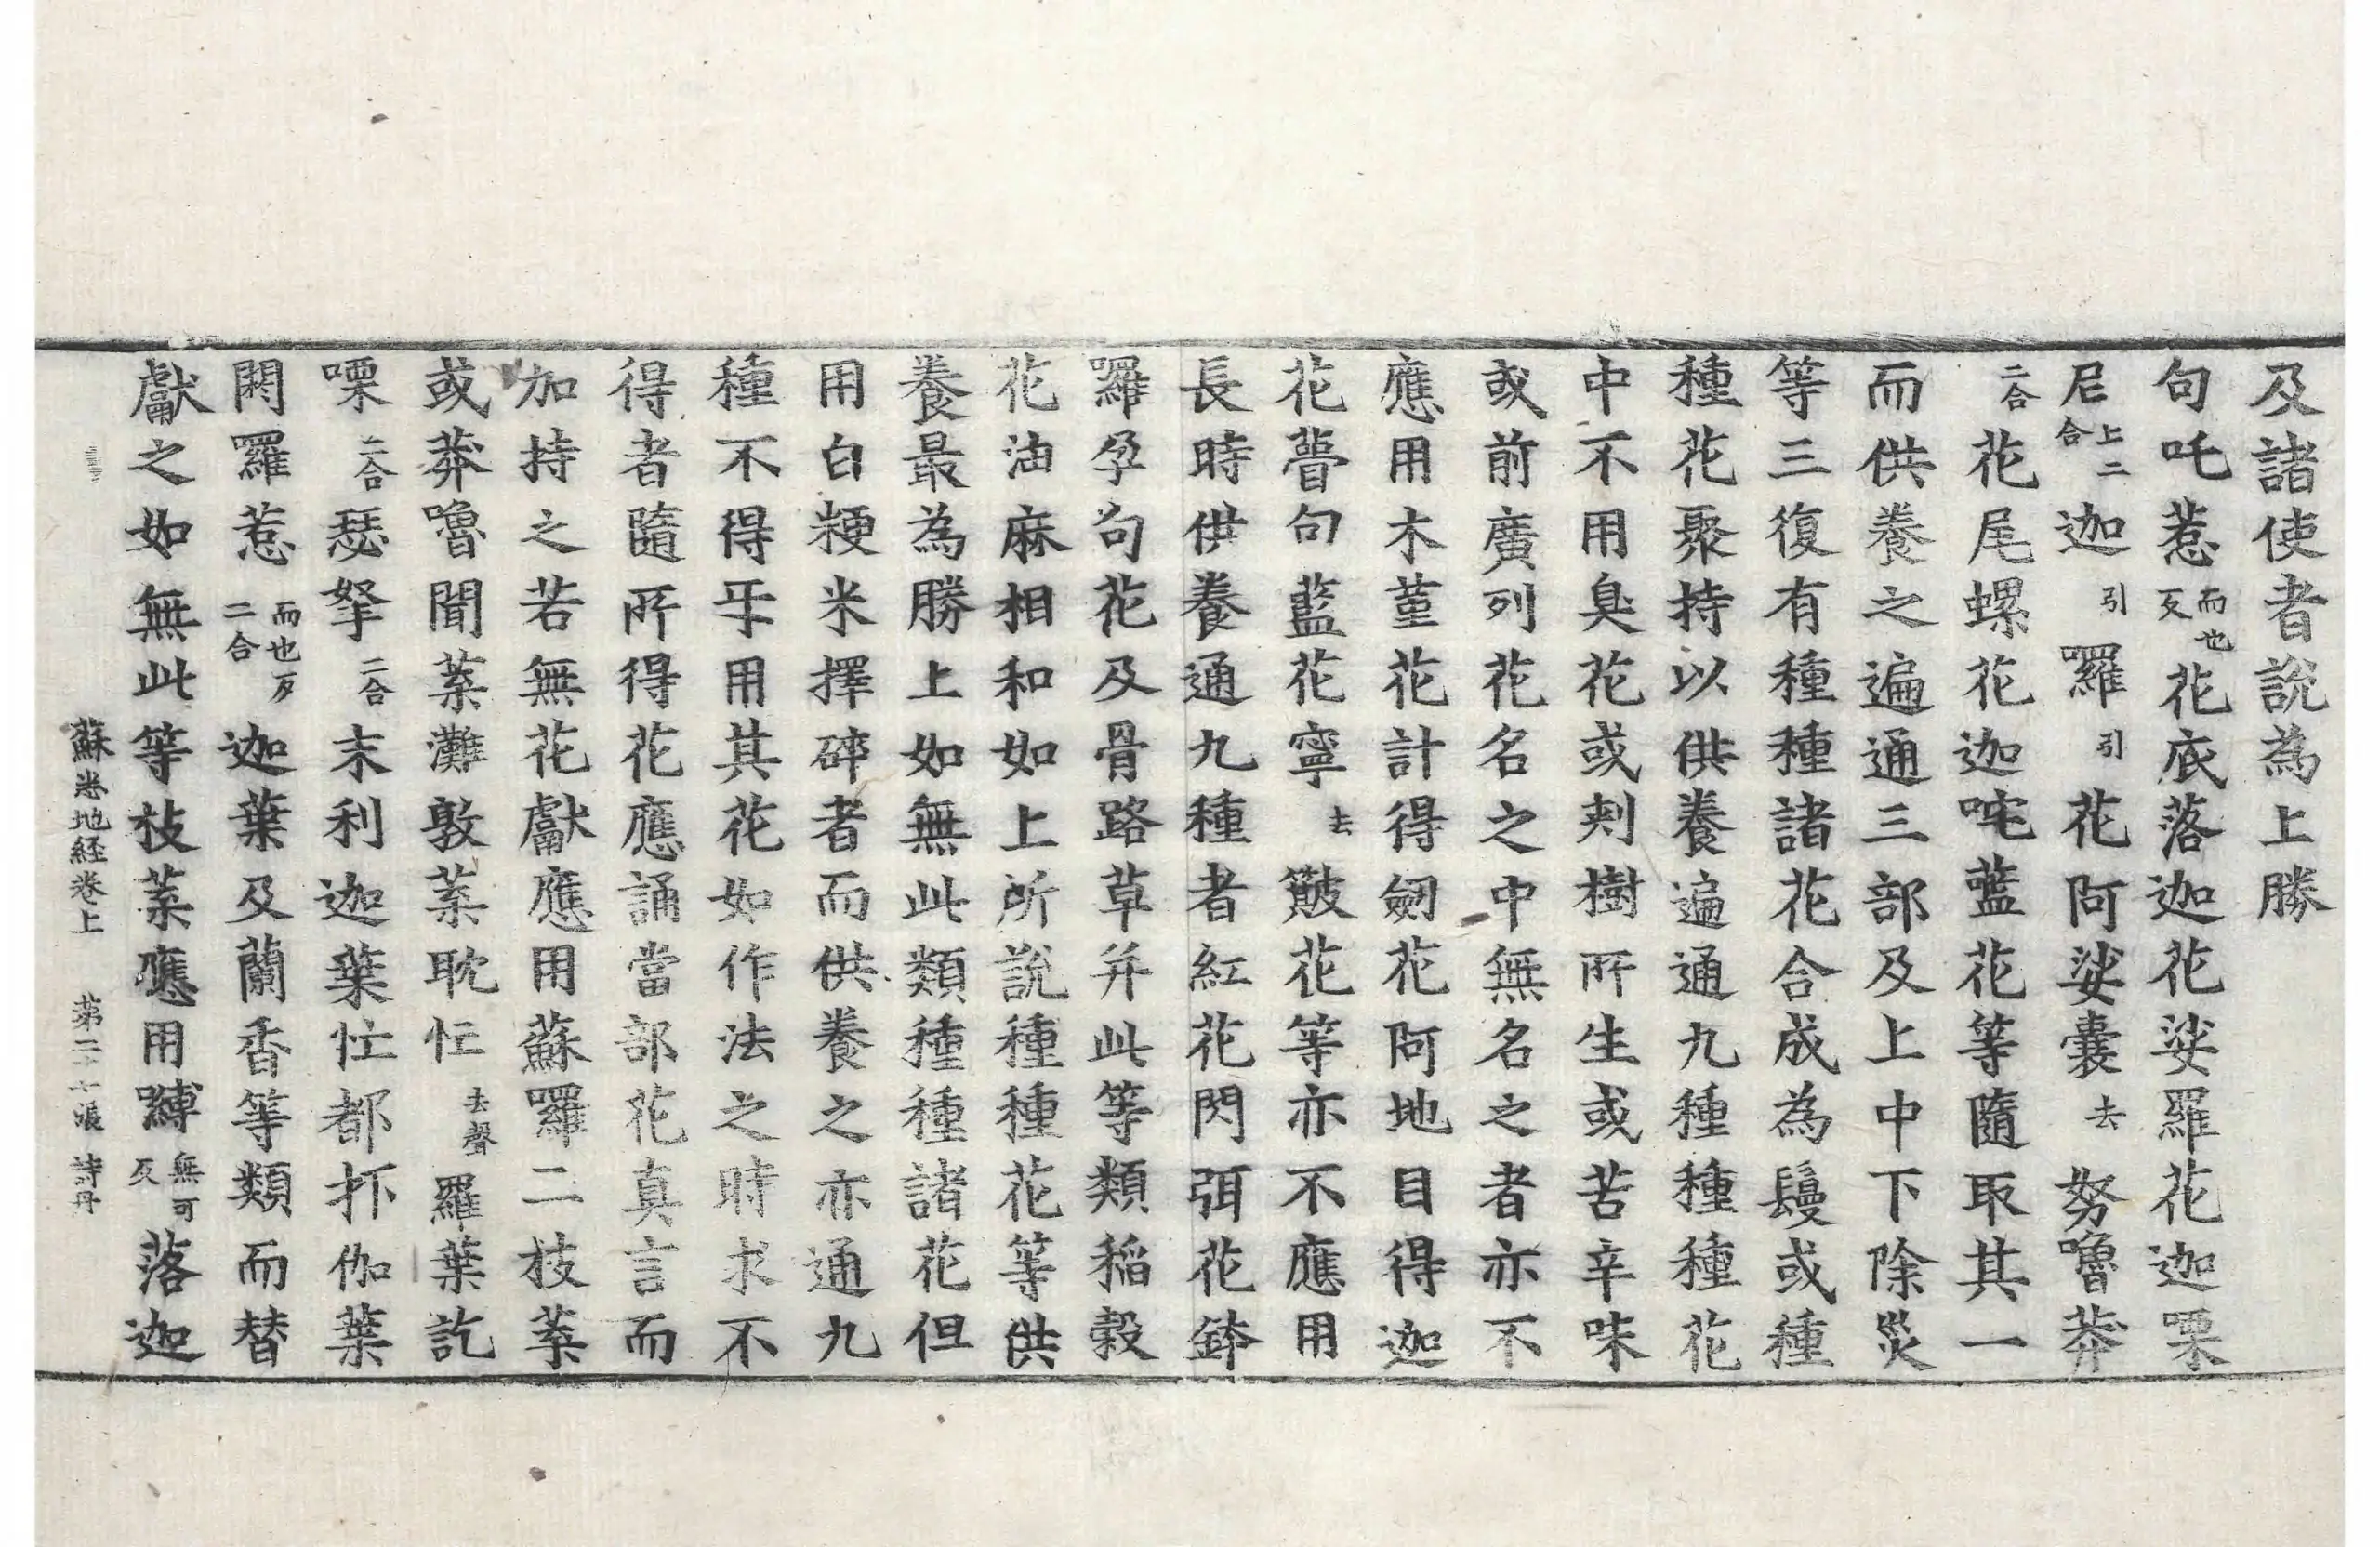 及諸使者說為上勝
句吒惹而也反花底落迦花娑羅花迦栗
尼上二合迦引羅引花阿娑嚢去努嚕莽
二合花尾螺花迦咤藍花等隨取其一
而供養之遍通三部及上中下除災
等三復有種種諸花合成為鬘或種
種花聚持以供養遍通九種種種花
中不用臭花或刾樹所生或苦辛味
或前廣列花名之中無名之者亦不
應用木菫花計得劒花阿地目得迦
花瞢句藍花寧去簸花等亦不應用
長時供養通九種者紅花閃弭花鉢
囉孕句花及骨路草并此等類稻穀
花油麻相和如上所說種種花等供
養最為勝上如無此類種種諸花但
用白粳米擇碎者而供養之亦通九
種不得𤓰用其花如作法之時求不
得者隨所得花應誦當部花真言而
加持之若無花獻應用蘇囉二枝葉
或莽嚕聞葉灘敦葉耽忙去聲羅葉訖
㗚二合瑟拏二合末利迦葉忙都抧伽葉
閼羅惹而也反二合迦葉及蘭香等類而替
獻之如無此等枝葉應用嚩無可反落迦
蘇悉地経卷上 第二十張 詩丹